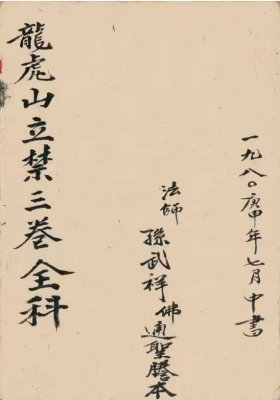 一九八〇庚申年七月中書
法師 孫武祥佛通聖謄本
龍虎山立禁三卷全科